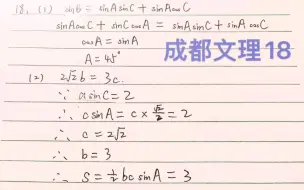 18. (1) sinB = sinAsinC + sinAcosC
sinAcosC + sinCcosA = sinAsinC + sinAcosC
cosA = sinA
A = 45°
成都文理18
(2) 2√2 b = 3c.
∵ asinC = 2
∴ csinA = c × √2/2 = 2
∴ c = 2√2
∴ b = 3
∴ S = 1/2 bc sinA = 3